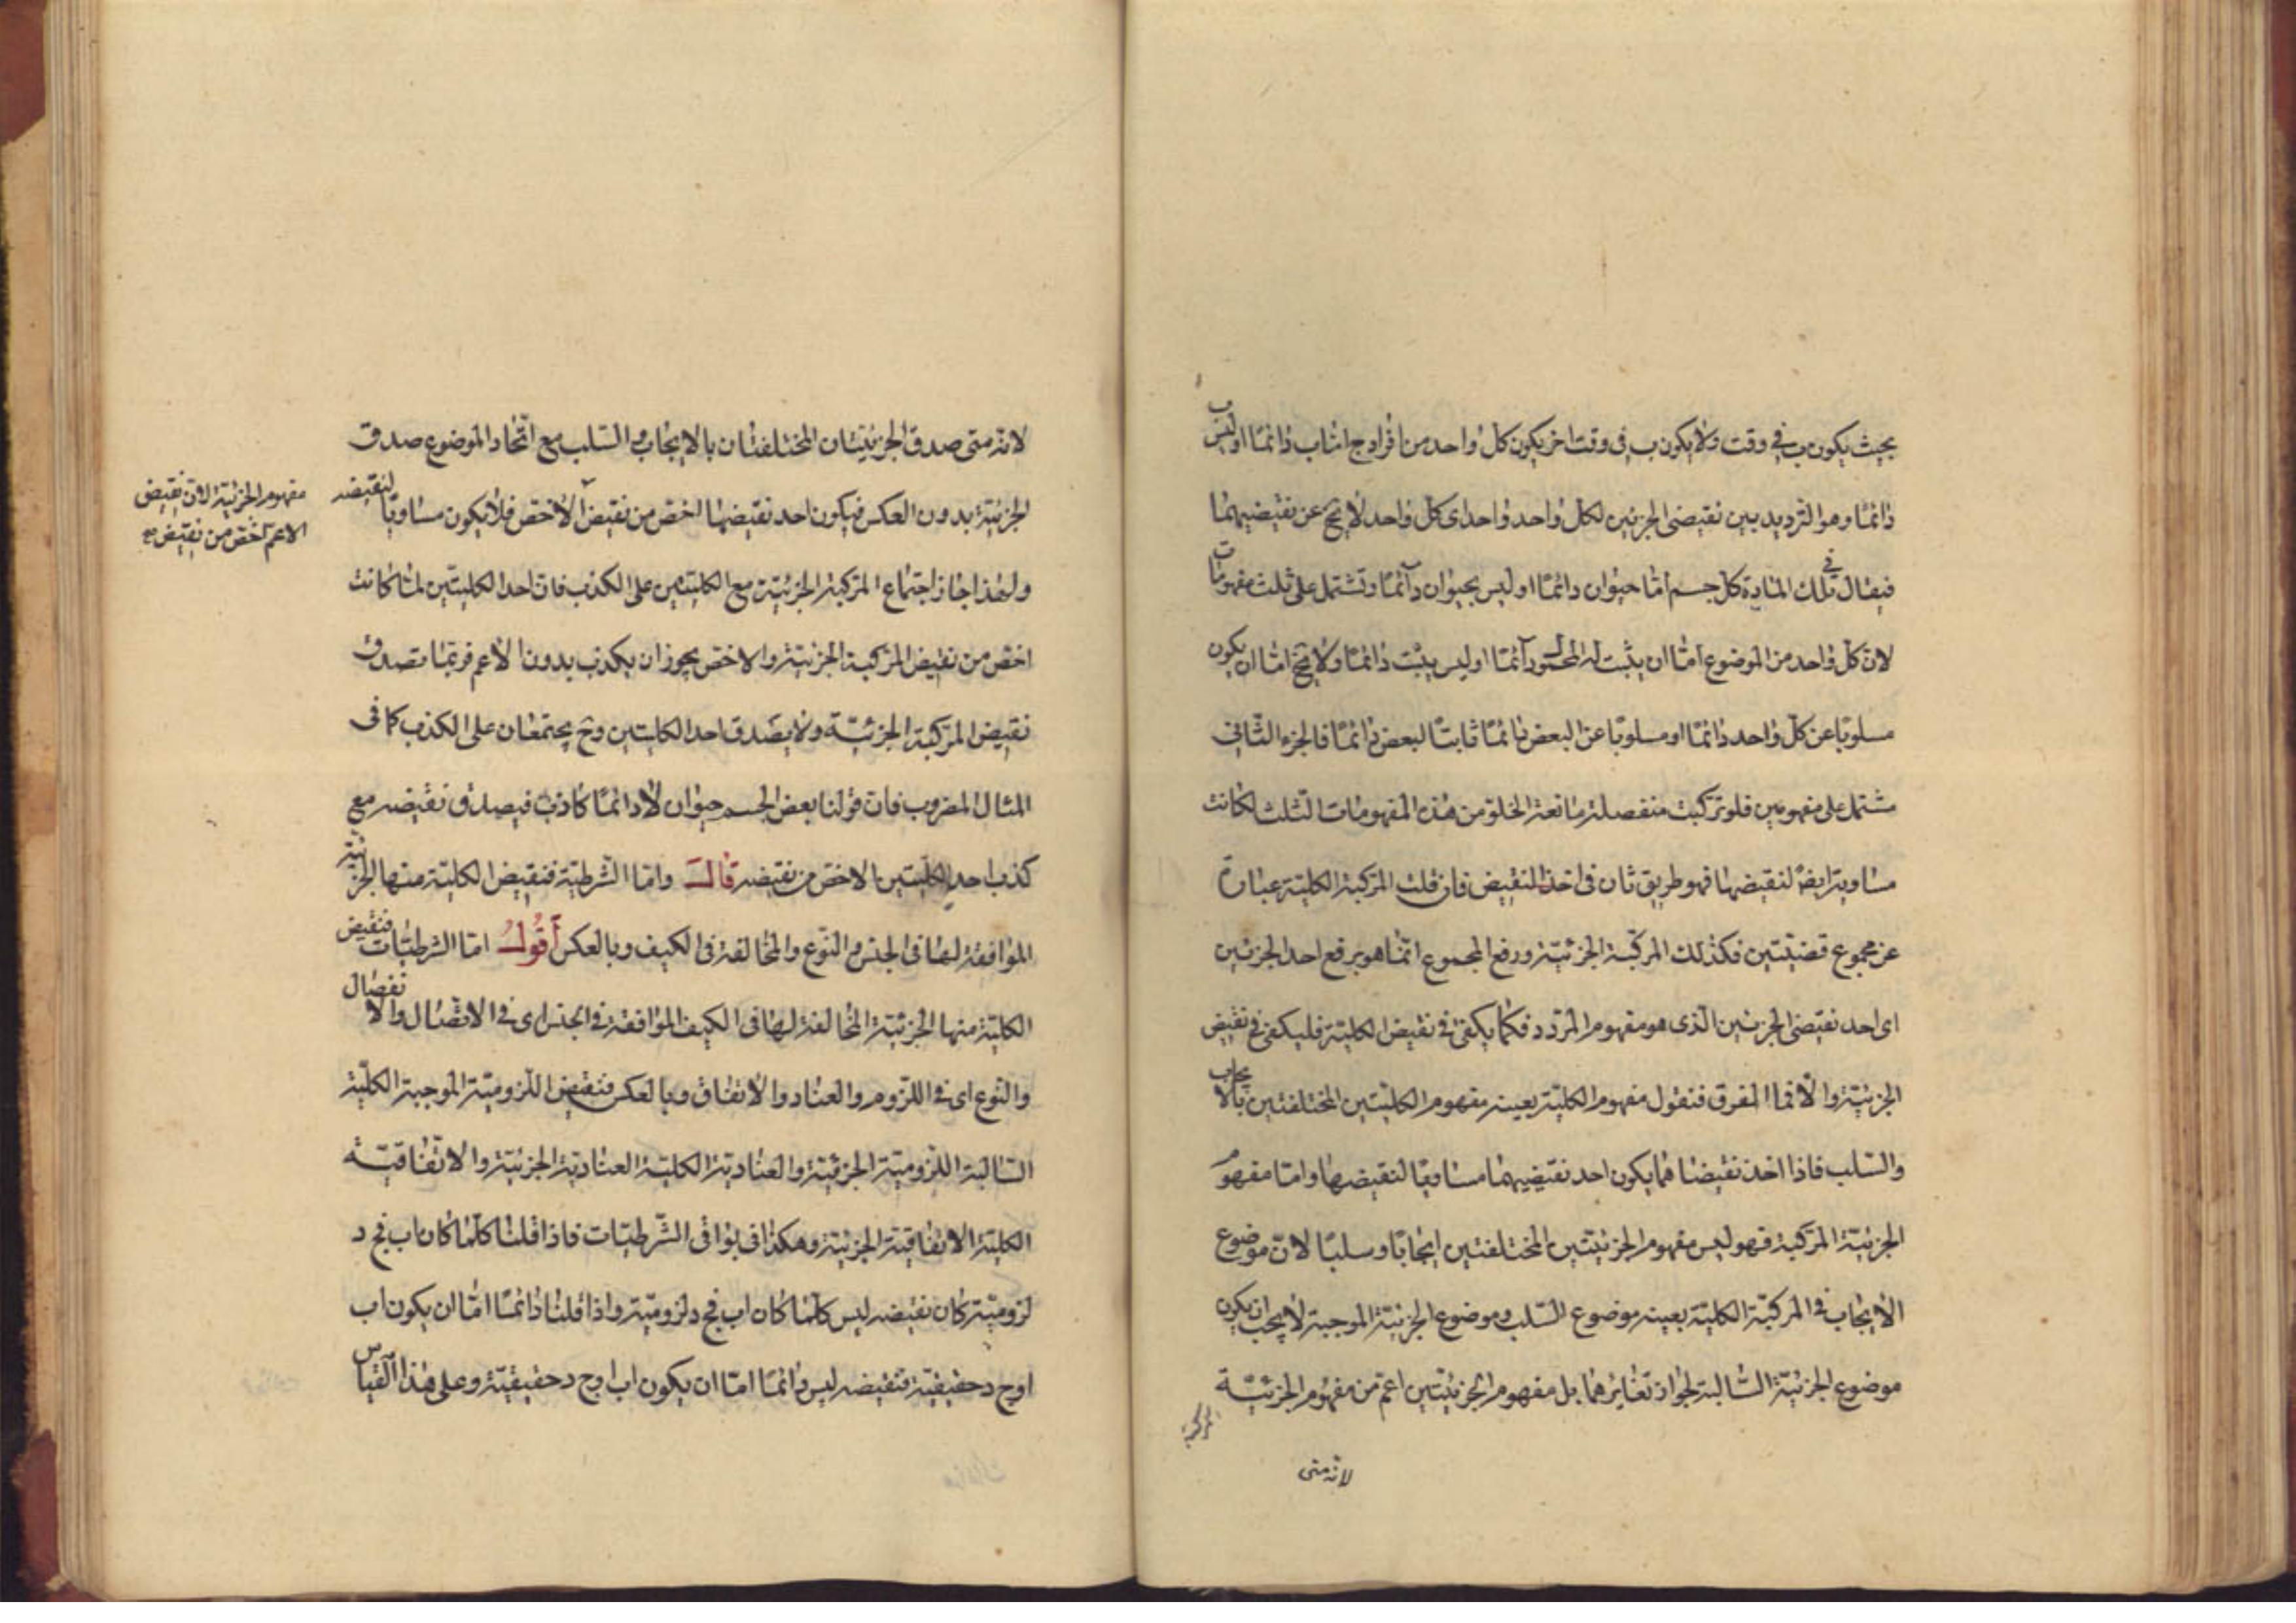 بحيث يكون ب في وقت ولا يكون ب في وقت اخر يكون كل واحد من افراد ج اما ب دائما او ليس ب
دائما وهو الترديد بين نقيضى الجزئين لكل واحد واحد اى كل واحد لا يخ عن نقيضيهما
فيقال في تلك المادة كل جسم اما حيوان دائما او ليس بحيوان دائما وتشتمل على ثلث مفهومات
لان كل واحد من الموضوع اما ان يثبت له المحمول دائما او ليس يثبت دائما ولا يخ اما ان يكون
مسلوبا عن كل واحد دائما او مسلوبا عن البعض دائما ثابتا لبعض دائما فالجزء الثانى
مشتمل على مفهومين فلو تركبت منفصلة مانعة الخلو من هذه المفهومات الثلث لكانت
مساوية ايضا لنقيضها فهو طريق ثان فى اخذ النقيض فان قلت المركبة الكلية عبارة
عن مجموع قضيتين فكذلك المركبة الجزئية ورفع المجموع انما هو برفع احد الجزئين
اى احد نقيضى الجزئين الذى هو مفهوم المردد فكما يكفى فى نقيض الكلية فليكفى فى نقيض
الجزئية والا فما الفرق فنقول مفهوم الكلية بعينه مفهوم الكليتين المختلفتين بالايجاب
والسلب فاذا اخذ نقيضاهما يكون احد نقيضيهما مساويا لنقيضها واما مفهوم
الجزئية المركبة فهو ليس مفهوم الجزئيتين المختلفتين ايجابا وسلبا لان موضوع
الايجاب فى المركبة الكلية بعينه موضوع السلب وموضوع الجزئية الموجبة لا يجب ان يكون
موضوع الجزئية السالبة لجواز تغايرهما بل مفهوم الجزئيتين اعم من مفهوم الجزئية
المركبة
لانه متى
لانه متى صدق الجزئيتان المختلفتان بالايجاب والسلب مع اتحاد الموضوع صدق
الجزئية بدون العكس فيكون احد نقيضهما اخص من نقيض الاخص فلا يكون مساويا لنقيضه
مفهوم الجزئية لان نقيض
الاعم اخص من نقيض
ولهذا جاز اجتماع المركبة الجزئية مع الكليتين على الكذب فان احد الكليتين لما كانت
اخص من نقيض المركبة الجزئية والاخص يجوز ان يكذب بدون الاعم فربما تصدق
نقيض المركبة الجزئية ولا يصدق احد الكليتين وح يجتمعان على الكذب كما فى
المثال المضروب فان قولنا بعض الجسم حيوان لا دائما كاذب فيصدق نقيضه مع
كذب احد الكليتين الاخص من نقيضه قال واما الشرطية فنقيض الكلية منها الجزئية
الموافقة لها فى الجنس والنوع والمخالفة فى الكيف وبالعكس أقول اما الشرطيات فنقيض
الكلية منها الجزئية المخالفة لها فى الكيف الموافقة فى الجنس اى فى الاتصال والانفصال
والنوع اى فى اللزوم والعناد والاتفاق وبالعكس فنقيض اللزومية الموجبة الكلية
السالبة اللزومية الجزئية والعنادية الكلية العنادية الجزئية والاتفاقية
الكلية الاتفاقية الجزئية وهكذا فى بواقى الشرطيات فاذا قلنا كلما كان اب فج د
لزومية كان نقيضه ليس كلما كان اب فج د لزومية واذا قلنا دائما اما ان يكون اب
او ج د حقيقية فنقيضه ليس دائما اما ان يكون اب او ج د حقيقية وعلى هذا القياس